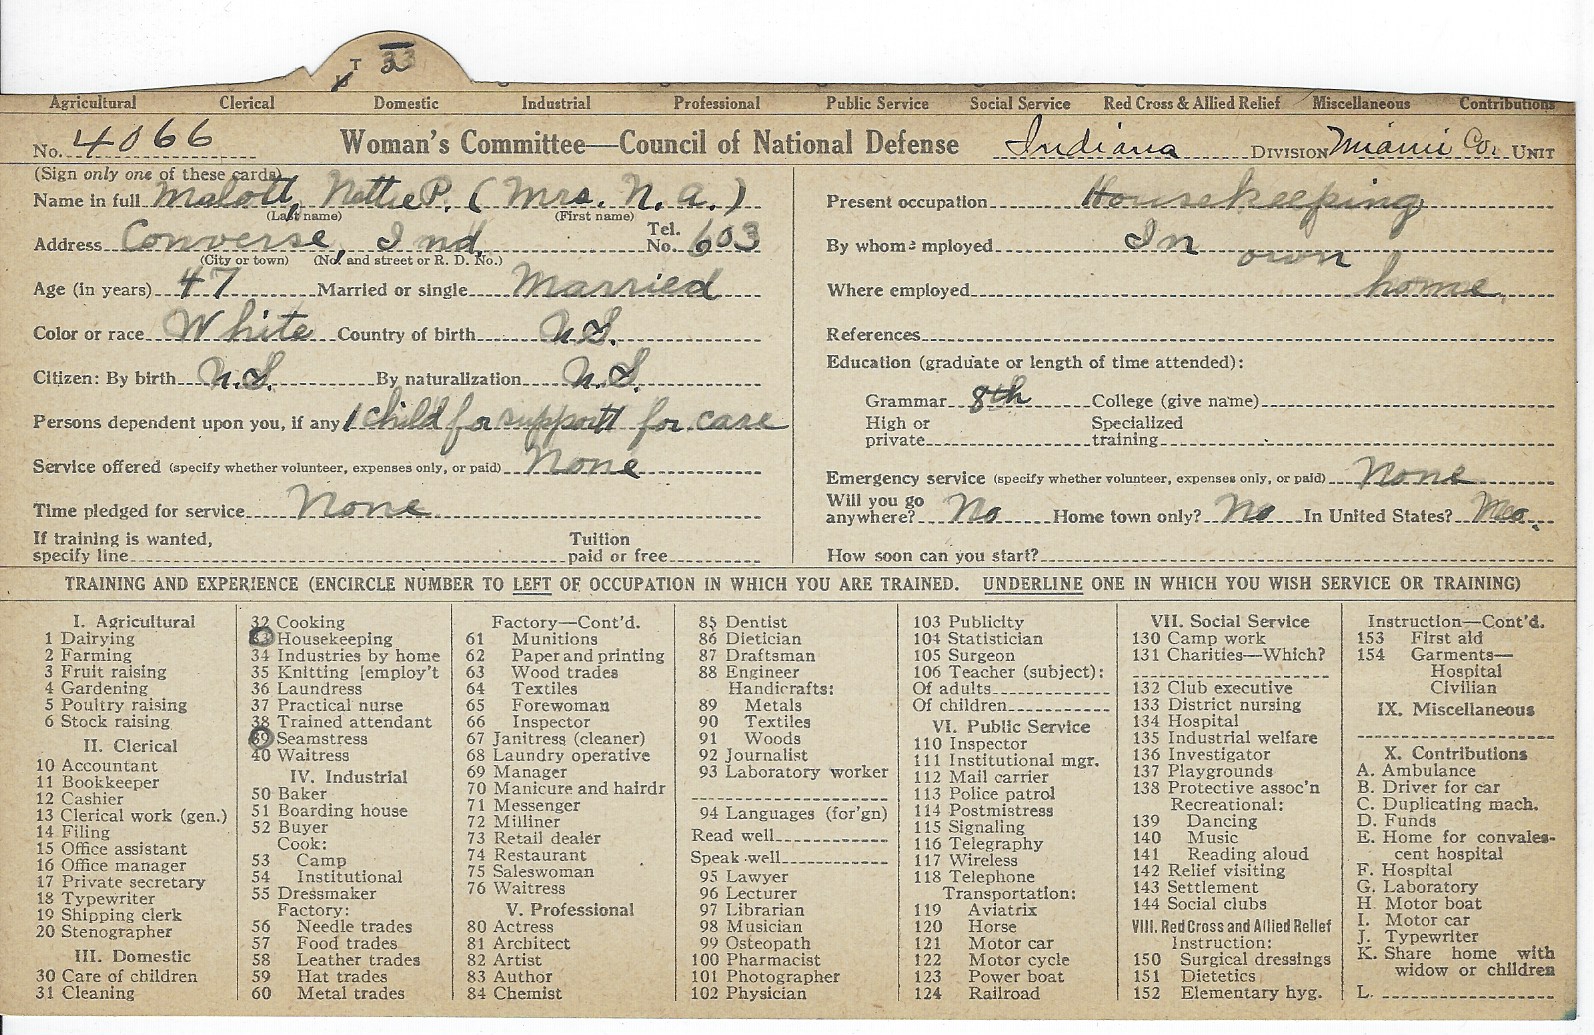 T 33
Agricultural Clerical Domestic Industrial Professional Public Service Social Service Red Cross & Allied Relief Miscellaneous Contributions
No. 4066 Woman's Committee—Council of National Defense Indiana DIVISION Miami Co. UNIT
(Sign only one of these cards)
Name in full Malott, Nettie P. (Mrs. N. A.)
(Last name) (First name)
Address Converse, Ind. Tel. No. 603
(City or town) (No. and street or R. D. No.)
Age (in years) 47 Married or single Married
Color or race White Country of birth U.S.
Citizen: By birth U.S. By naturalization U.S.
Persons dependent upon you, if any 1 child for support for care
Service offered (specify whether volunteer, expenses only, or paid) None
Time pledged for service None
If training is wanted, specify line Tuition paid or free
Present occupation Housekeeping
By whom employed In own
Where employed home
References
Education (graduate or length of time attended):
Grammar 8th College (give name)
High or private Specialized training
Emergency service (specify whether volunteer, expenses only, or paid) None
Will you go anywhere? No Home town only? No In United States?
How soon can you start?
TRAINING AND EXPERIENCE (ENCIRCLE NUMBER TO LEFT OF OCCUPATION IN WHICH YOU ARE TRAINED. UNDERLINE ONE IN WHICH YOU WISH SERVICE OR TRAINING)
I. Agricultural
1 Dairying
2 Farming
3 Fruit raising
4 Gardening
5 Poultry raising
6 Stock raising
II. Clerical
10 Accountant
11 Bookkeeper
12 Cashier
13 Clerical work (gen.)
14 Filing
15 Office assistant
16 Office manager
17 Private secretary
18 Typewriter
19 Shipping clerk
20 Stenographer
III. Domestic
30 Care of children
31 Cleaning
32 Cooking
33 Housekeeping
34 Industries by home
35 Knitting [employ't
36 Laundress
37 Practical nurse
38 Trained attendant
39 Seamstress
40 Waitress
IV. Industrial
50 Baker
51 Boarding house
52 Buyer
Cook:
53 Camp
54 Institutional
55 Dressmaker
Factory:
56 Needle trades
57 Food trades
58 Leather trades
59 Hat trades
60 Metal trades
Factory—Cont'd.
61 Munitions
62 Paper and printing
63 Wood trades
64 Textiles
65 Forewoman
66 Inspector
67 Janitress (cleaner)
68 Laundry operative
69 Manager
70 Manicure and hairdr
71 Messenger
72 Milliner
73 Retail dealer
74 Restaurant
75 Saleswoman
76 Waitress
V. Professional
80 Actress
81 Architect
82 Artist
83 Author
84 Chemist
85 Dentist
86 Dietician
87 Draftsman
88 Engineer
Handicrafts:
89 Metals
90 Textiles
91 Woods
92 Journalist
93 Laboratory worker
94 Languages (for'gn)
Read well
Speak well
95 Lawyer
96 Lecturer
97 Librarian
98 Musician
99 Osteopath
100 Pharmacist
101 Photographer
102 Physician
103 Publicity
104 Statistician
105 Surgeon
106 Teacher (subject):
Of adults
Of children
VI. Public Service
110 Inspector
111 Institutional mgr.
112 Mail carrier
113 Police patrol
114 Postmistress
115 Signaling
116 Telegraphy
117 Wireless
118 Telephone
Transportation:
119 Aviatrix
120 Horse
121 Motor car
122 Motor cycle
123 Power boat
124 Railroad
VII. Social Service
130 Camp work
131 Charities—Which?
132 Club executive
133 District nursing
134 Hospital
135 Industrial welfare
136 Investigator
137 Playgrounds
138 Protective assoc'n
Recreational:
139 Dancing
140 Music
141 Reading aloud
142 Relief visiting
143 Settlement
144 Social clubs
VIII. Red Cross and Allied Relief
Instruction:
150 Surgical dressings
151 Dietetics
152 Elementary hyg.
Instruction—Cont'd.
153 First aid
154 Garments—
Hospital
Civilian
IX. Miscellaneous
X. Contributions
A. Ambulance
B. Driver for car
C. Duplicating mach.
D. Funds
E. Home for convales-
cent hospital
F. Hospital
G. Laboratory
H. Motor boat
I. Motor car
J. Typewriter
K. Share home with
widow or children
L.